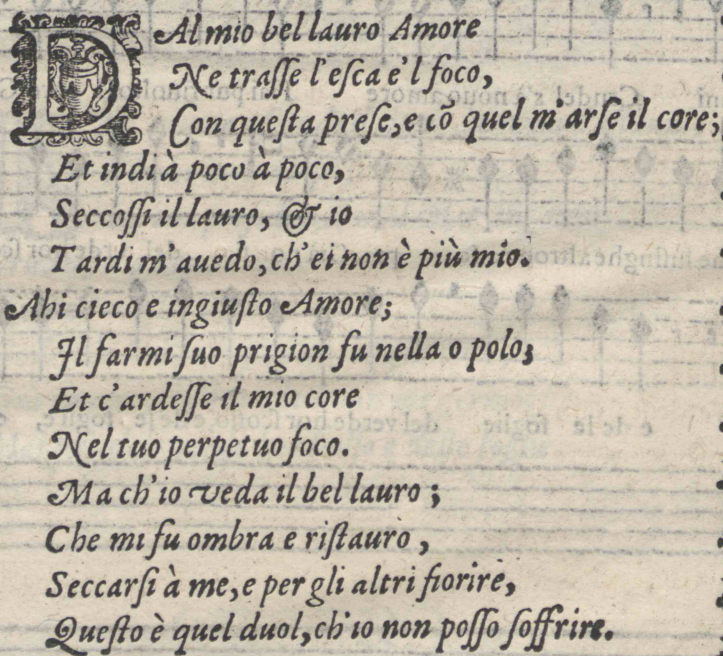 DAl mio bel lauro Amore
Ne traſſe l'eſca e'l foco,
Con queſta preſe, e cõ quel m'arſe il core;
Et indi à poco à poco,
Seccoſſi il lauro, & io
Tardi m'auedo, ch'ei non è più mio.
Ahi cieco e ingiuſto Amore;
Il farmi ſuo prigion fu nella o polo;
Et c'ardeſſe il mio core
Nel tuo perpetuo foco.
Ma ch'io veda il bel lauro;
Che mi fu ombra e riſtauro,
Seccarſi à me, e per gli altri fiorire,
Queſto è quel duol, ch'io non poſſo ſoffrire.